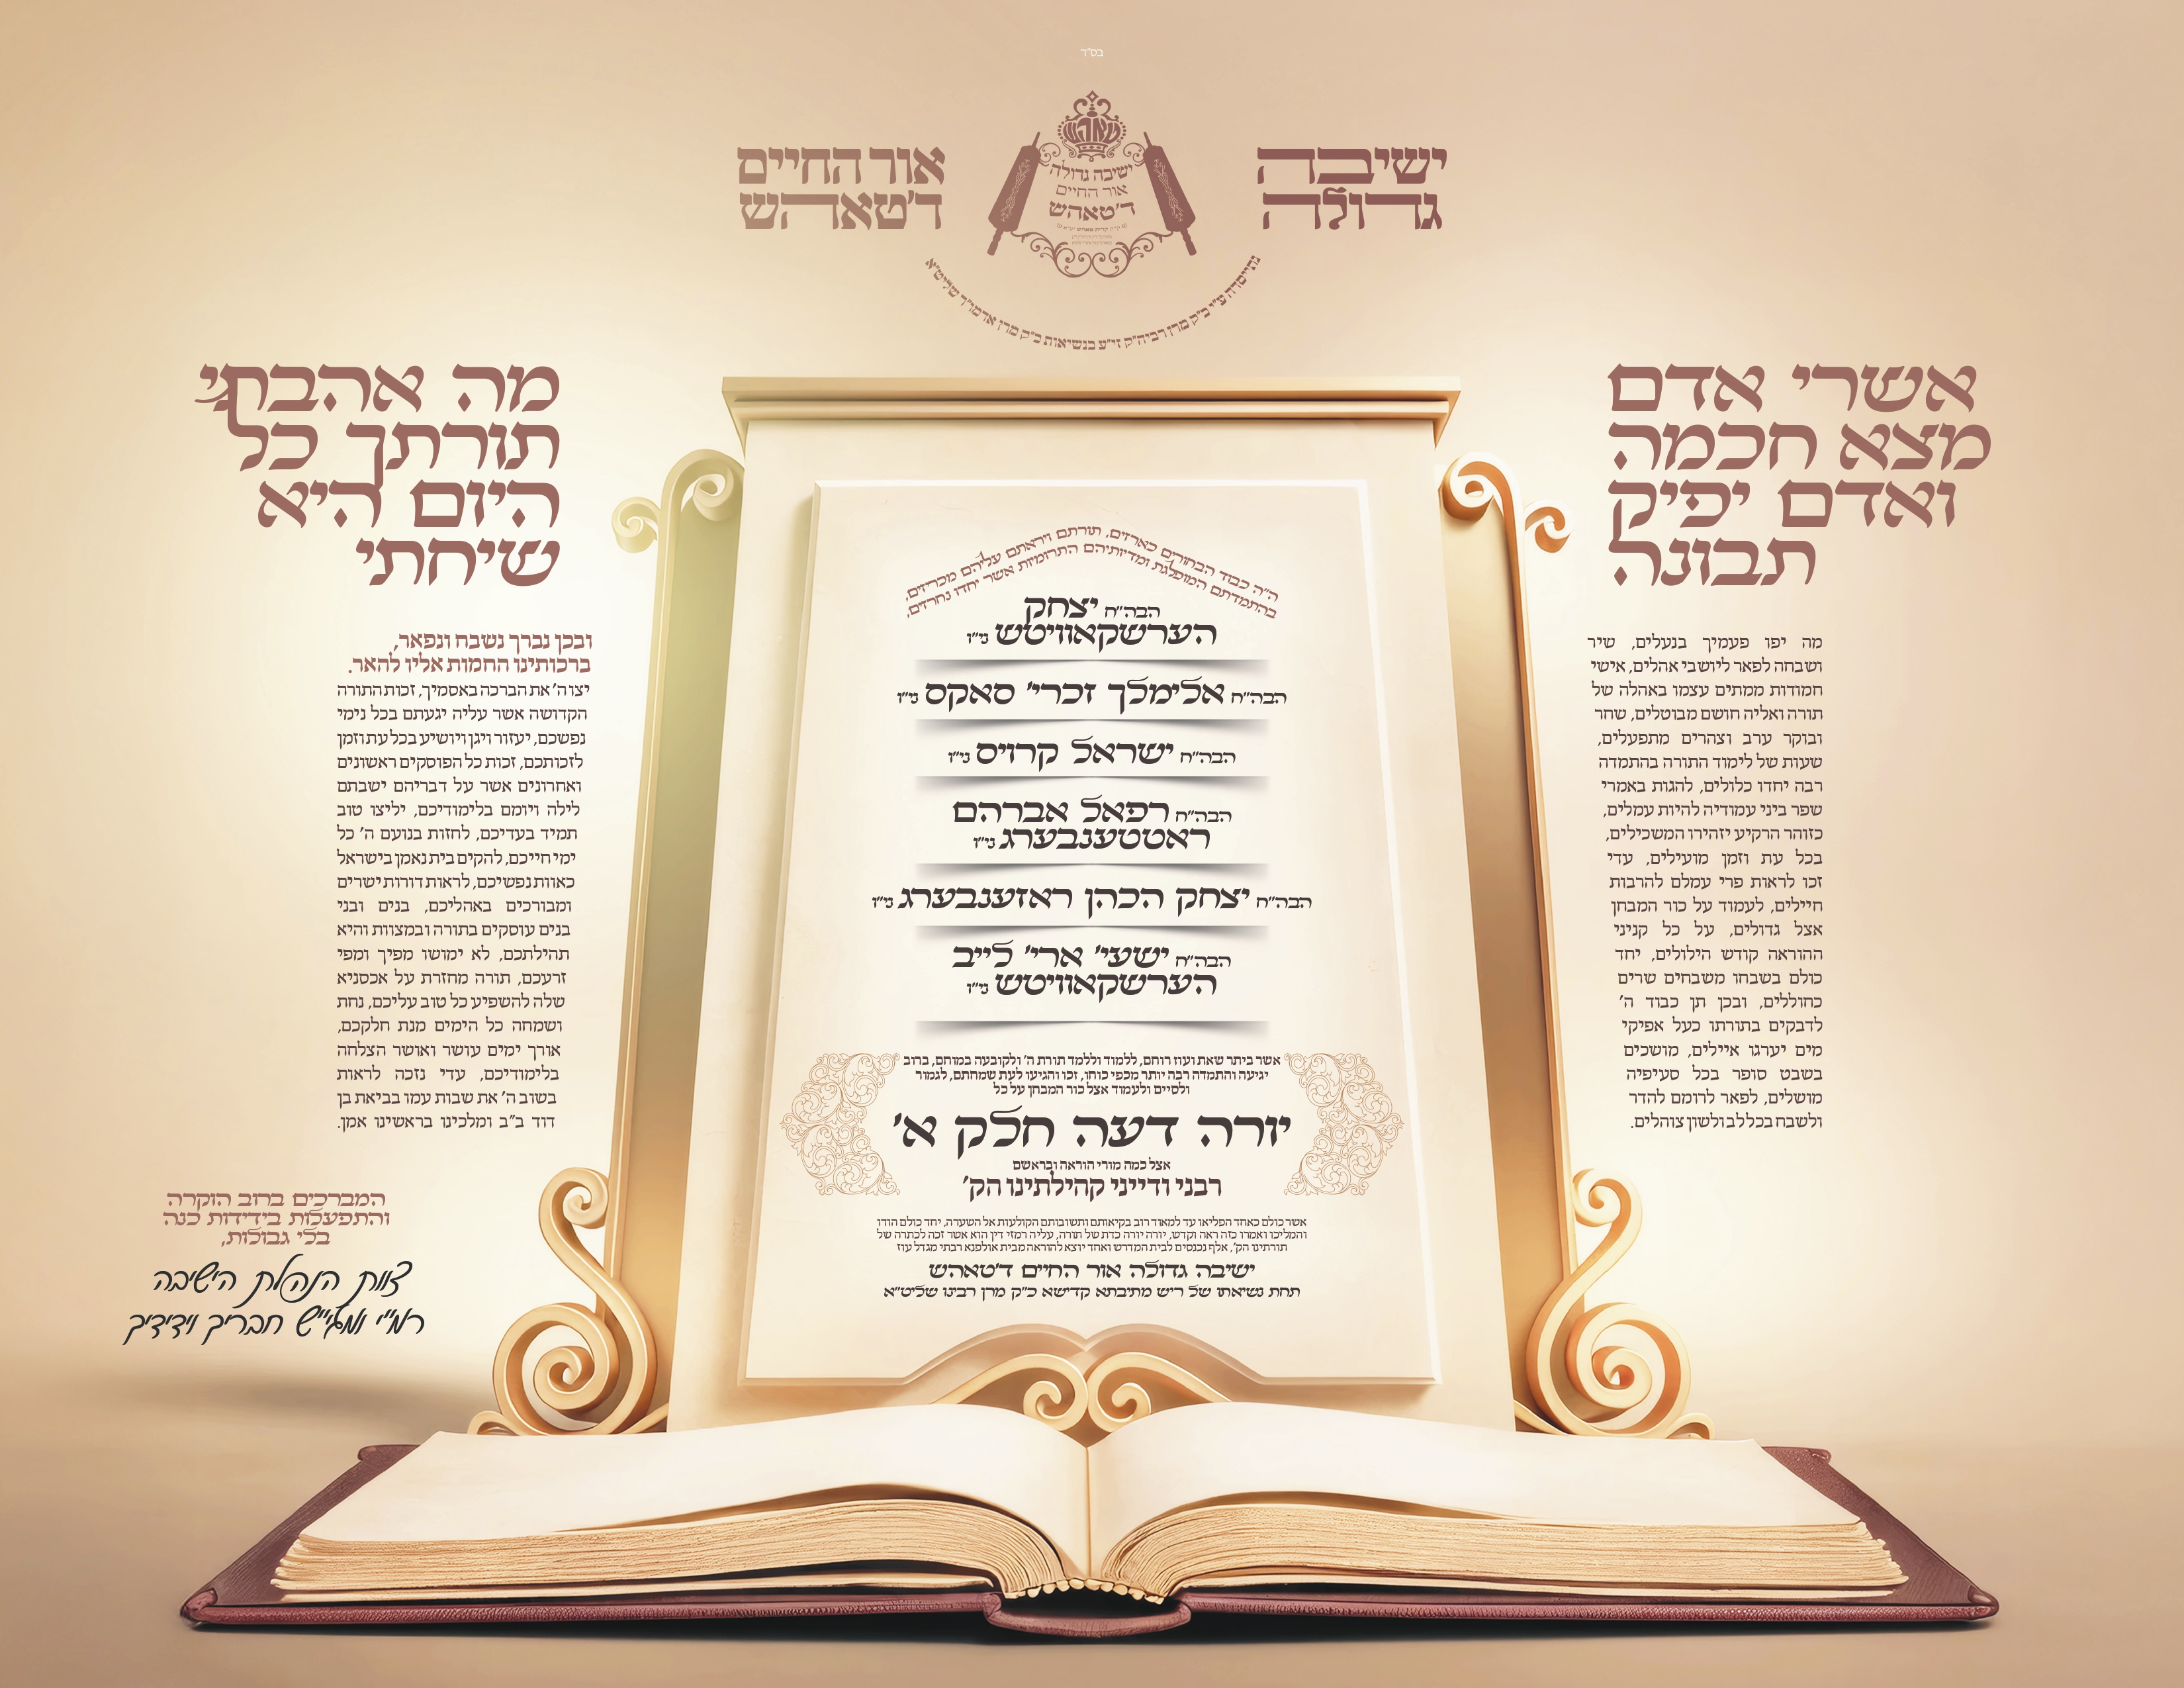 בס"ד
ישיבה
גדולה
אור החיים
ד'טאהש
טאהש
ישיבה גדולה
אור החיים
ד'טאהש
נתייסדה ע"י כ"ק מרן רביה"ק זי"ע בנשיאות כ"ק מרן אדמו"ר שליט"א
אשרי אדם
מצא חכמה
ואדם יפיק
תבונה
מה יפו פעמיך בנעלים, שיר
ושבחה לפאר ליושבי אהלים, אישי
חמודות ממתים עצמו באהלה של
תורה ואליה חושם מבוטלים, שחר
ובוקר ערב וצהרים מתפעלים,
שעות של לימוד התורה בהתמדה
רבה יחדו כלולים, להגות באמרי
שפר ביני עמודיה להיות עמלים,
כזוהר הרקיע יזהירו המשכילים,
בכל עת וזמן מועילים, עדי
זכו לראות פרי עמלם להרבות
חיילים, לעמוד על כור המבחן
אצל גדולים, על כל קניני
ההוראה קודש הילולים, יחד
כולם בשבחו משבחים שרים
כחוללים, ובכן תן כבוד ה'
לדבקים בתורתו כעל אפיקי
מים יערגו איילים, מושכים
בשבט סופר בכל סעיפיה
מושלים, לפאר לרומם להדר
ולשבח בכל לב ולשון צוהלים.
ה"ה כבוד הבחורים כארזים, תורתם ויראתם עליהם מכריזים,
בהתמדתם המופלגת ומדיותיהם התרומיות אשר יחדו נחרזים,
הבה"ח יצחק
הערשקאוויטש ני"ו
הבה"ח אלימלך זכרי' סאקס ני"ו
הבה"ח ישראל קרויס ני"ו
הבה"ח רפאל אברהם
ראטטענבערג ני"ו
הבה"ח יצחק הכהן ראזענבערג ני"ו
הבה"ח ישעי' ארי' לייב
הערשקאוויטש ני"ו
אשר ביתר שאת ועוז רוחם, ללמוד וללמד תורת ה' ולקובעה במוחם, ברוב
יגיעה והתמדה רבה יותר מכפי כוחו, זכו והגיעו לעת שמחתם, לגמור
ולסיים ולעמוד אצל כור המבחן על כל
יורה דעה חלק א'
אצל כמה מורי הוראה ובראשם
רבני ודייני קהילתינו הק'
אשר כולם כאחד הפליאו עד למאוד רוב בקיאותם ותשובותם הקולעות אל השערה, יחד כולם הודו
והמליכו ואמרו כזה ראה וקדש, יורה יורה כדת של תורה, עליה רמזי דין הוא אשר זכה לכתרה של
תורתינו הק', אלף נכנסים לבית המדרש ואחד יוצא להוראה מבית אולפנא רבתי מגדל עוז
ישיבה גדולה אור החיים ד'טאהש
תחת נשיאתו של ריש מתיבתא קדישא כ"ק מרן רבינו שליט"א
מה אהבתי
תורתך כל
היום היא
שיחתי
ובכן נברך נשבח ונפאר,
ברכותינו החמות אליו להאר.
יצוה ה' את הברכה באסמיך, זכות התורה
הקדושה אשר עליה יגעתם בכל נימי
נפשכם, יעזור ויגן ויושיע בכל עת וזמן
לזכותכם, זכות כל הפוסקים ראשונים
ואחרונים אשר על דבריהם ישבתם
לילה ויומם בלימודיכם, יליצו טוב
תמיד בעדיכם, לחזות בנועם ה' כל
ימי חייכם, להקים בית נאמן בישראל
כאוות נפשיכם, לראות דורות ישרים
ומבורכים באהליכם, בנים ובני
בנים עוסקים בתורה ובמצוות והיא
תהילתכם, לא ימושו מפיך ומפי
זרעכם, תורה מחזרת על אכסניא
שלה להשפיע כל טוב עליכם, נחת
ושמחה כל הימים מנת חלקכם,
אורך ימים עושר ואושר הצלחה
בלימודיכם, עדי נזכה לראות
בשוב ה' את שבות עמו בביאת בן
דוד ב"ב ומלכינו בראשינו אמן.
המברכים ברוב הוקרה
והתפעלות בידידות כנה
בלי גבולות,
צוות הנהלת הישיבה
רמ"י ומגי"ש חבריך וידידיך